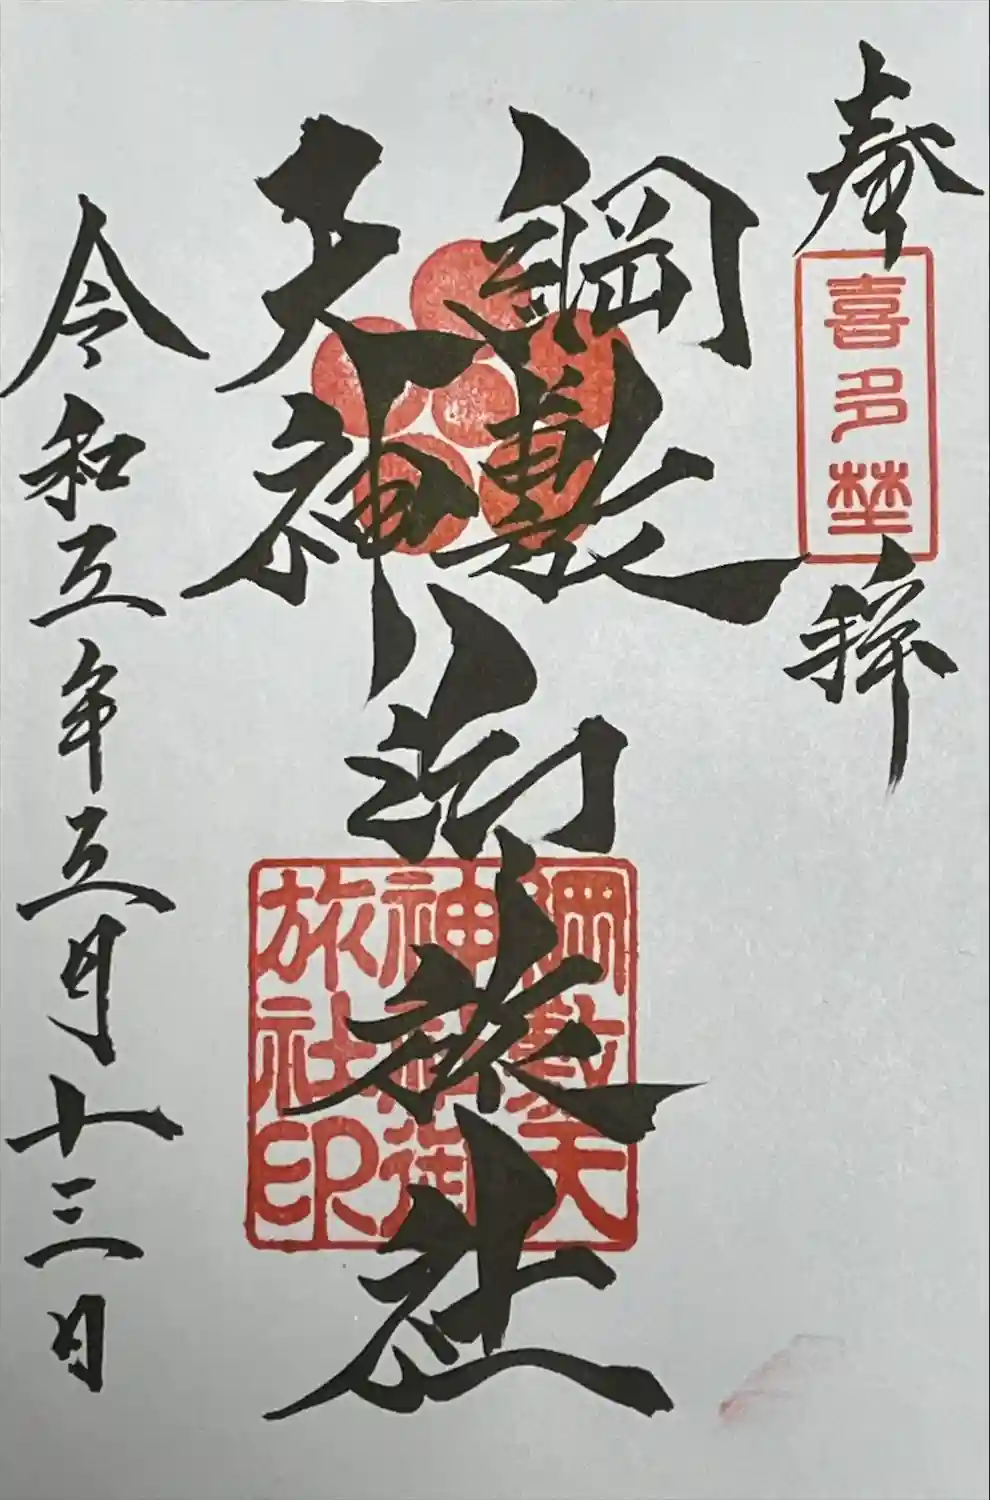 奉拝
喜多埜
綱敷
天神
御旅社
綱敷天
神社御
旅社印
令和五年五月十三日